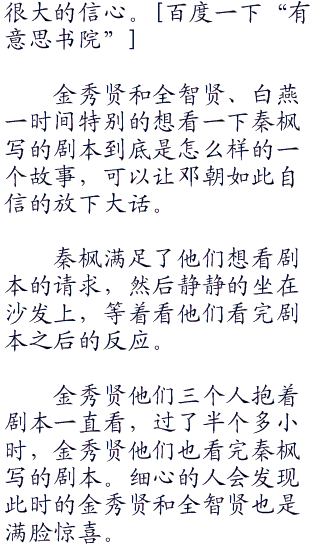 很大的信心。[百度一下“有
意思书院”]
金秀贤和全智贤、白燕
一时间特别的想看一下秦枫
写的剧本到底是怎么样的一
个故事，可以让邓朝如此自
信的放下大话。
秦枫满足了他们想看剧
本的请求，然后静静的坐在
沙发上，等着看他们看完剧
本之后的反应。
金秀贤他们三个人抱着
剧本一直看，过了半个多小
时，金秀贤他们也看完秦枫
写的剧本。细心的人会发现
此时的金秀贤和全智贤也是
满脸惊喜。